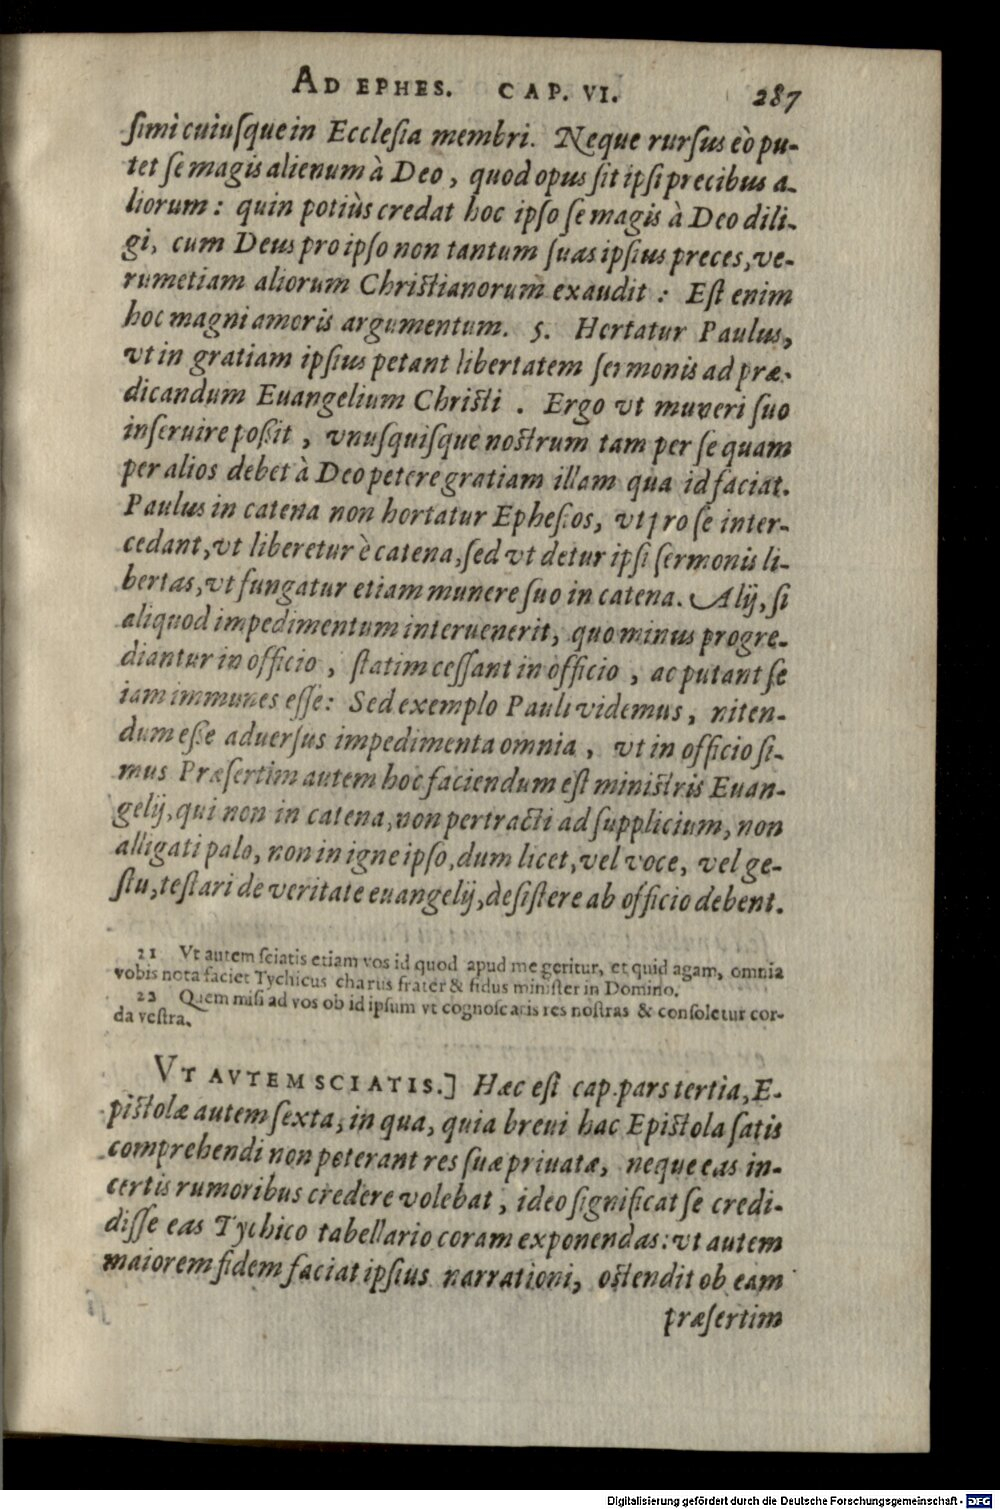 AD EPHES. CAP. VI. 287
ſimi cuiuſque in Eccleſia membri. Neque rurſus eò pu-
tet ſe magis alienum à Deo, quod opus ſit ipſi precibus a-
liorum: quin potiùs credat hoc ipſo ſe magis à Deo dili-
gi, cum Deus pro ipſo non tantum ſuas ipſius preces, ve-
rumetiam aliorum Chriſtianorum exaudit: Eſt enim
hoc magni amoris argumentum. 5. Hortatur Paulus,
vt in gratiam ipſius petant libertatem ſermonis ad præ-
dicandum Euangelium Chriſti. Ergo vt muneri ſuo
inſeruire poßit, vnuſquiſque noſtrum tam per ſe quam
per alios debet à Deo petere gratiam illam qua id faciat.
Paulus in catena non hortatur Epheſios, vt pro ſe inter-
cedant, vt liberetur è catena, ſed vt detur ipſi ſermonis li-
bertas, vt fungatur etiam munere ſuo in catena. Alij, ſi
aliquod impedimentum interuenerit, quo minus progre-
diantur in officio, ſtatim ceſſant in officio, ac putant ſe
iam immunes eſſe: Sed exemplo Pauli videmus, niten-
dum eſſe aduerſus impedimenta omnia, vt in officio ſi-
mus Præſertim autem hoc faciendum eſt miniſtris Euan-
gelij, qui non in catena, non pertracti ad ſupplicium, non
alligati palo, non in igne ipſo, dum licet, vel voce, vel ge-
ſtu, teſtari de veritate euangelij, deſiſtere ab officio debent.
21 Vt autem ſciatis etiam vos id quod apud me geritur, et quid agam, omnia
vobis nota faciet Tychicus charus frater & fidus miniſter in Domino.
22 Quem miſi ad vos ob id ipſum vt cognoſcatis res noſtras & conſoletur cor-
da veſtra.
VT AVTEM SCIATIS.] Hæc eſt cap. pars tertia, E-
piſtolæ autem ſexta, in qua, quia breui hac Epiſtola ſatis
comprehendi non poterant res ſuæ priuatæ, neque eas in-
certis rumoribus credere volebat, ideo ſignificat ſe credi-
diſſe eas Tychico tabellario coram exponendas: vt autem
maiorem fidem faciat ipſius narrationi, oſtendit ob eam
præſertim
Digitalisierung gefördert durch die Deutsche Forschungsgemeinschaft - DFG